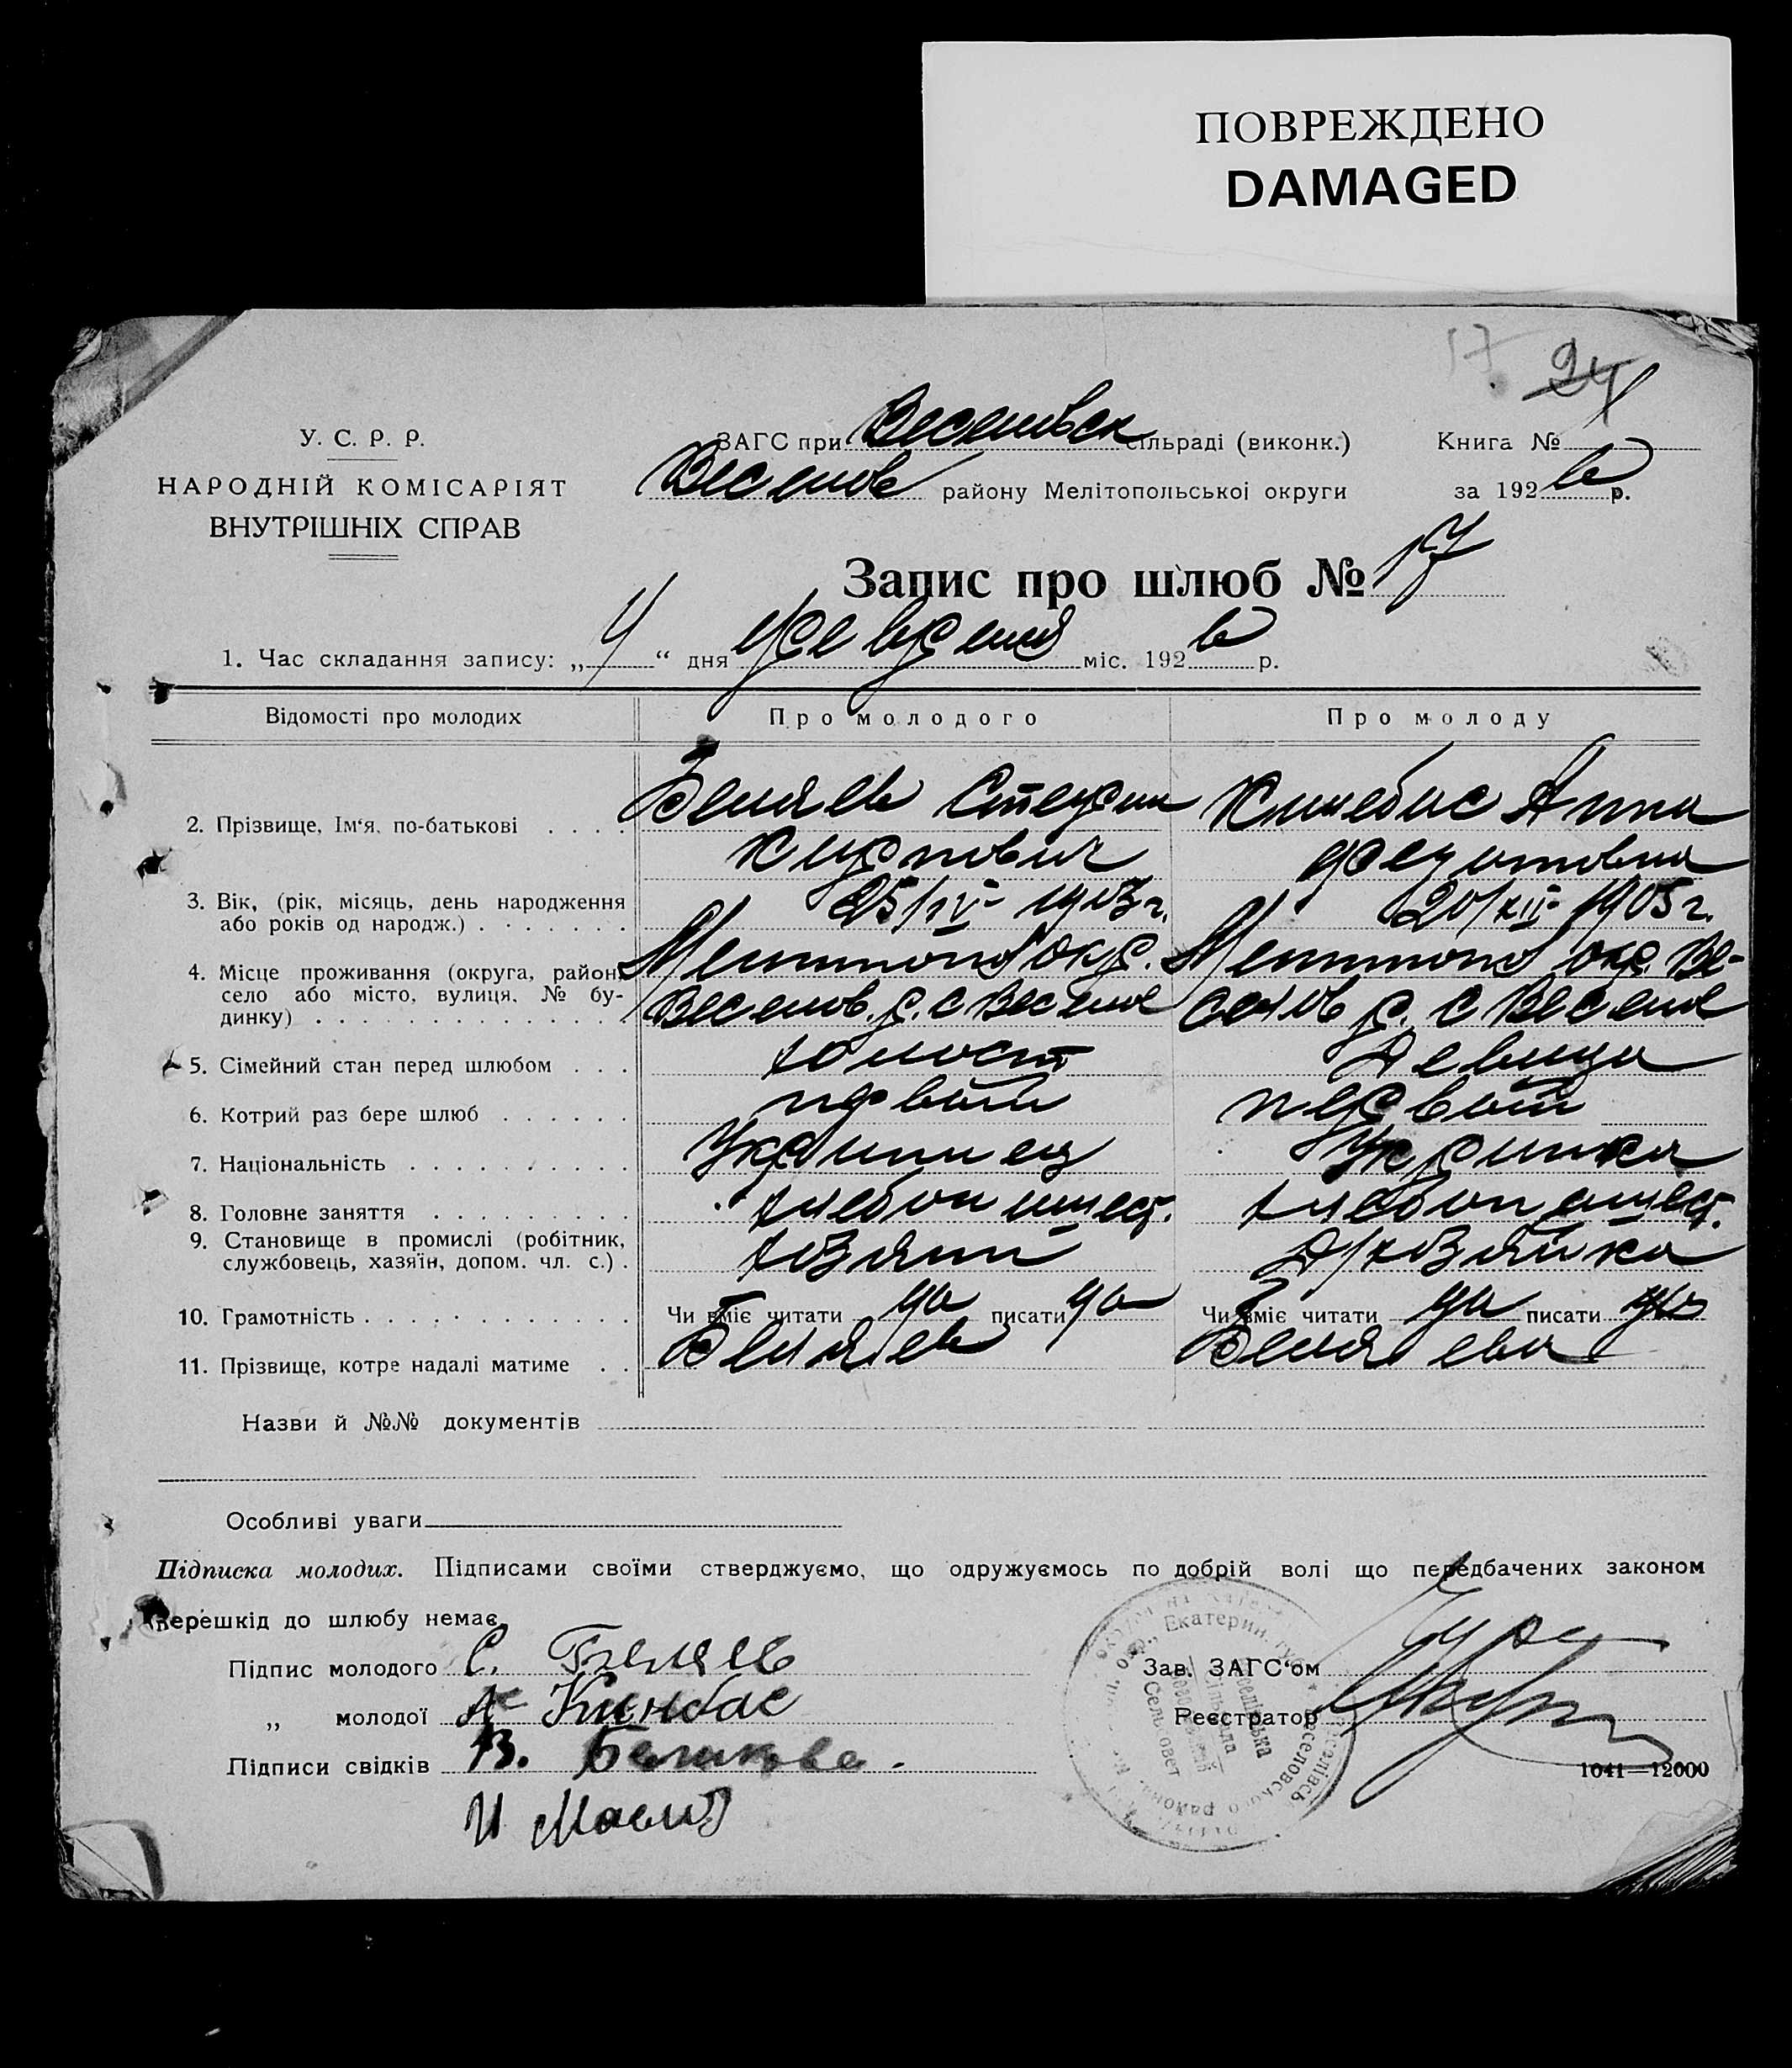 ПОВРЕЖДЕНО
DAMAGED
17 24
У. С. Р. Р.
НАРОДНІЙ КОМІСАРІЯТ
ВНУТРІШНІХ СПРАВ
ЗАГС при Веселовск сільраді (виконк.) Книга №
Веселов району Мелітопольської округи за 1926 р.
Запис про шлюб № 17
1. Час складання запису: „ 4 “ дня февраля міс. 1926 р.
Відомості про молодих Про молодого Про молоду
2. Прізвище, Ім‘я, по-батькові Беляев Стефан Кинебас Анна
Карпович Федотовна
3. Вік, (рік, місяць, день народження 25/IV- 1903 г. 20/XII- 1905 г.
або років од народж.)
4. Місце проживання (округа, район, Мелитоп окр. Мелитоп окр. Ве-
село або місто, вулиця, № бу- Веселов. р. с Веселое селов р. с Веселое
динку)
5. Сімейний стан перед шлюбом холост девица
6. Котрий раз бере шлюб первый первый
7. Національність Украинец Укр
8. Головне заняття хлебопашест. хлебопашест.
9. Становище в промислі (робітник, хозяин Д/хозяйка
службовець, хазяїн, допом. чл. с.)
10. Грамотність Чи вміє читати да писати да Чи вміє читати да писати да
11. Прізвище, котре надалі матиме Беляев Беляева
Назви й №№ документів
Особливі уваги
Підписка молодих. Підписами своїми стверджуємо, що одружуємось по добрій волі що передбачених законом
перешкід до шлюбу немає.
Підпис молодого С. Беляев Зав. ЗАГС‘ом
„ молодої А Кинбас Реєстратор
Підписи свідків В.
И
Екатерин. губ.
Веселівська
Сільрада
Сельсовет
Веселовского района
1041—12000